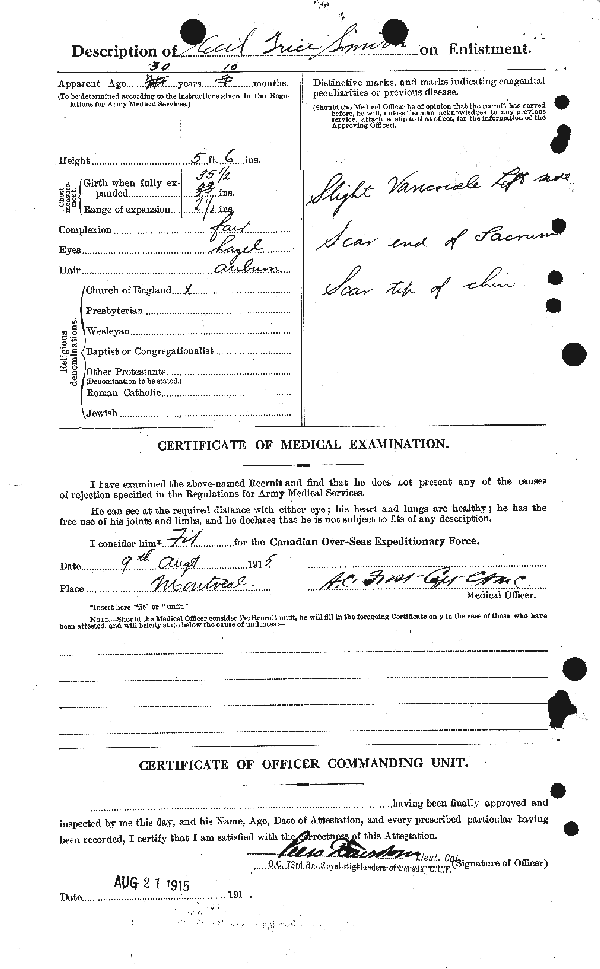 Description of Cecil Price on Enlistment.
30 10
Apparent Age years months.
(To be determined according to the instructions given in the Regulations for Army Medical Services.)
Distinctive marks, and marks indicating congenital
peculiarities or previous disease.
(Should the Medical Officer be of opinion that the recruit has served
before, he will, unless the man acknowledges to any previous
service, attach a slip to that effect, for the information of the
Approving Officer).
Height 5 ft. 6 ins.
Chest measurement
Girth when fully expanded 35 1/2 ins.
Range of expansion ins.
Complexion fair
Eyes hazel
Hair auburn
Slight Varicocele left side
Scar end of Sacrum
Scar tip of chin
Religious denominations.
Church of England x
Presbyterian
Wesleyan
Baptist or Congregationalist
Other Protestants
(Denomination to be stated.)
Roman Catholic
Jewish
CERTIFICATE OF MEDICAL EXAMINATION.
I have examined the above-named Recruit and find that he does not present any of the causes
of rejection specified in the Regulations for Army Medical Services.
He can see at the required distance with either eye; his heart and lungs are healthy; he has the
free use of his joints and limbs, and he declares that he is not subject to fits of any description.
I consider him* Fit for the Canadian Over-Seas Expeditionary Force.
Date 9th Augt 1915
Place Montreal
Medical Officer.
*Insert here "fit" or "unfit."
NOTE.—Should the Medical Officer consider the Recruit unfit, he will fill in the foregoing Certificate only in the case of those who have
been attested, and will briefly state below the cause of unfitness:—
CERTIFICATE OF OFFICER COMMANDING UNIT.
having been finally approved and
inspected by me this day, and his Name, Age, Date of Attestation, and every prescribed particular having
been recorded, I certify that I am satisfied with the correctness of this Attestation.
Lieut. Col. (Signature of Officer)
O.C. 73rd Bn. Royal Highlanders of Canada, C.E.F.
AUG 27 1915
Date 191